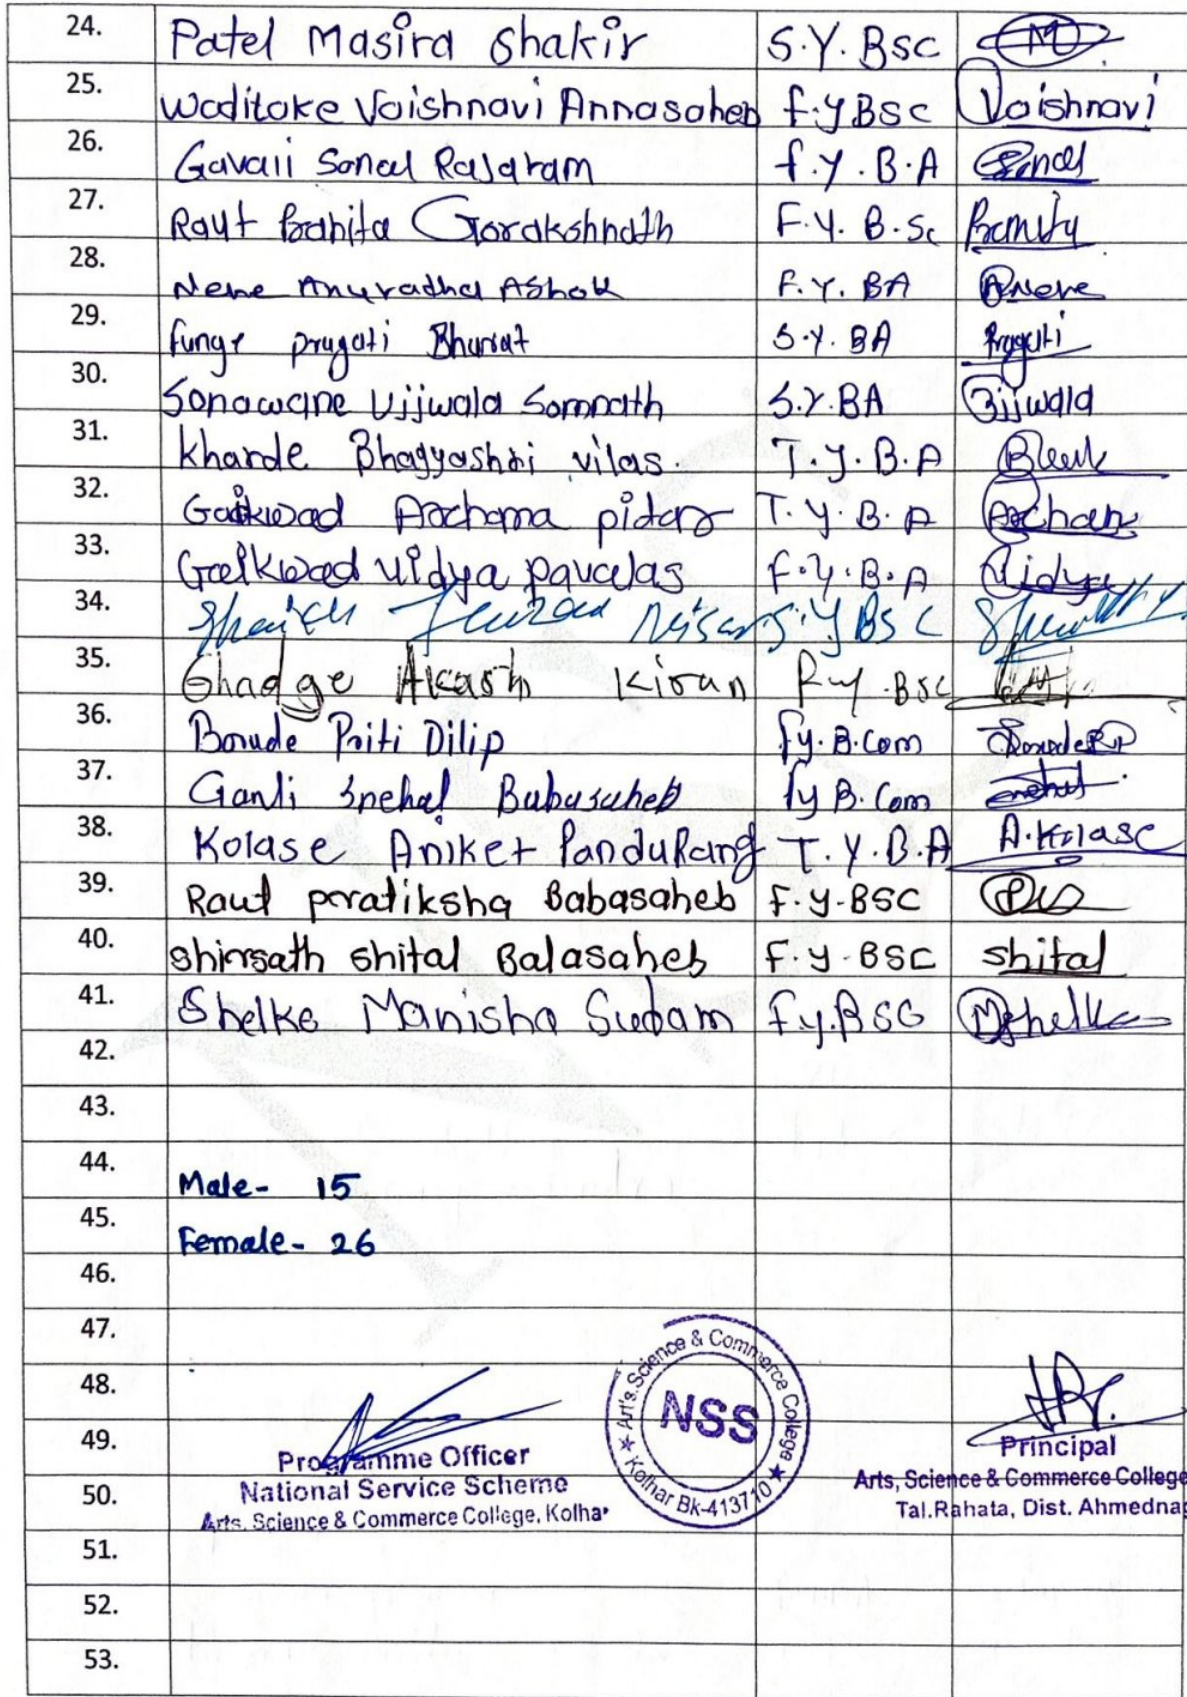 24. Patel Masira Shakir S.Y. BSC M
25. Waditake Vaishnavi Annasaheb f.y BSC Vaishnavi
26. Gavali Sonal Rajaram f.y. B.A Sonal
27. Raut Pranita Gorakshnath F.Y. B.Sc
28. Nene Anuradha Ashok F.Y. BA ANene
29. funge pragati Bharat S.Y. BA Pragati
30. Sonawane Ujjwala Somnath S.Y. BA Ujjwala
31. Kharde Bhagyashri vilas. T.Y.B.A
32. Gaikwad Archana T.Y.B.A Archana
33. Gaikwad vidya f.y.B.A Vidya
34. Shaikh Nisar S.Y BSC
35. Ghadge Akash Kiran F.y.BSC
36. Borude Priti Dilip fy. B.Com
37. Snehal Babasaheb fy B.Com Snehal
38. Kolase Aniket PanduRang T.Y.B.A A.Kolase
39. Raut pratiksha Babasaheb F.Y-BSC
40. shirsath shital Balasaheb F.Y-BSC shital
41. Shelke Manisha Sudam F.y.BSC MShelke
42.
43.
44. Male- 15
45. Female- 26
46.
47.
48.
49.
50.
51.
52.
53.
Programme Officer
National Service Scheme
Arts, Science & Commerce College, Kolha
★ Art's, Science & Commerce College ★
NSS
Kolhar Bk-413710
Principal
Arts, Science & Commerce College
Tal.Rahata, Dist. Ahmednag